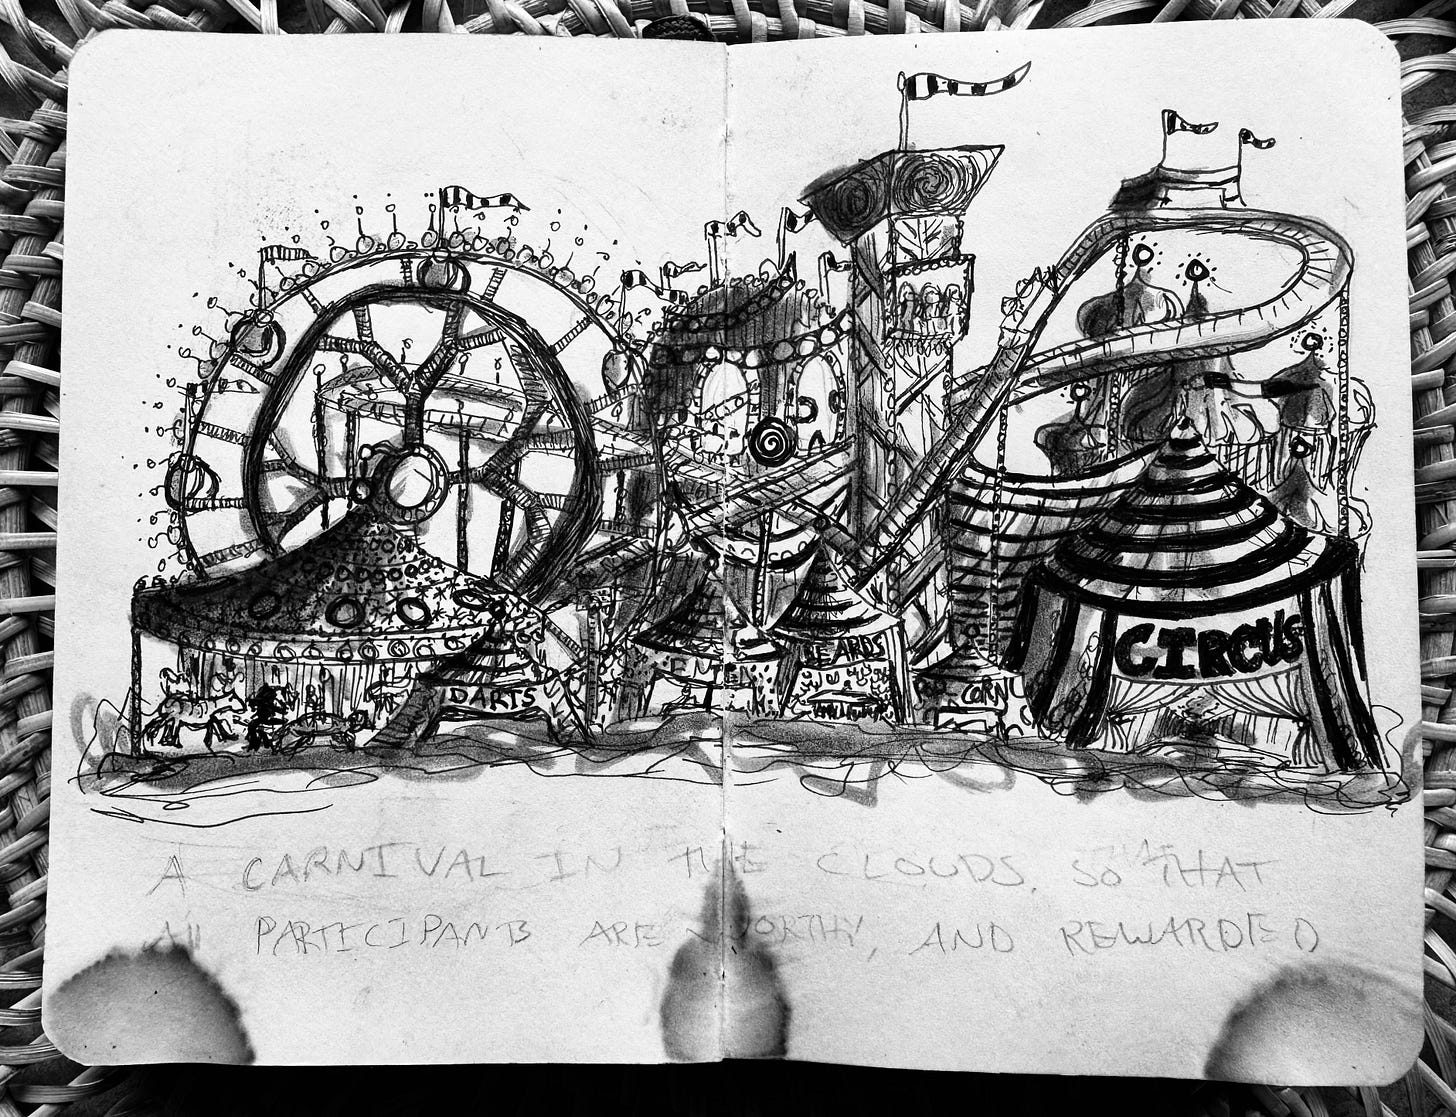 CIRCUS
BEARDS
DARTS
CORN
A CARNIVAL IN THE CLOUDS, SO THAT
All PARTICIPANTS ARE WORTHY, AND REWARDED